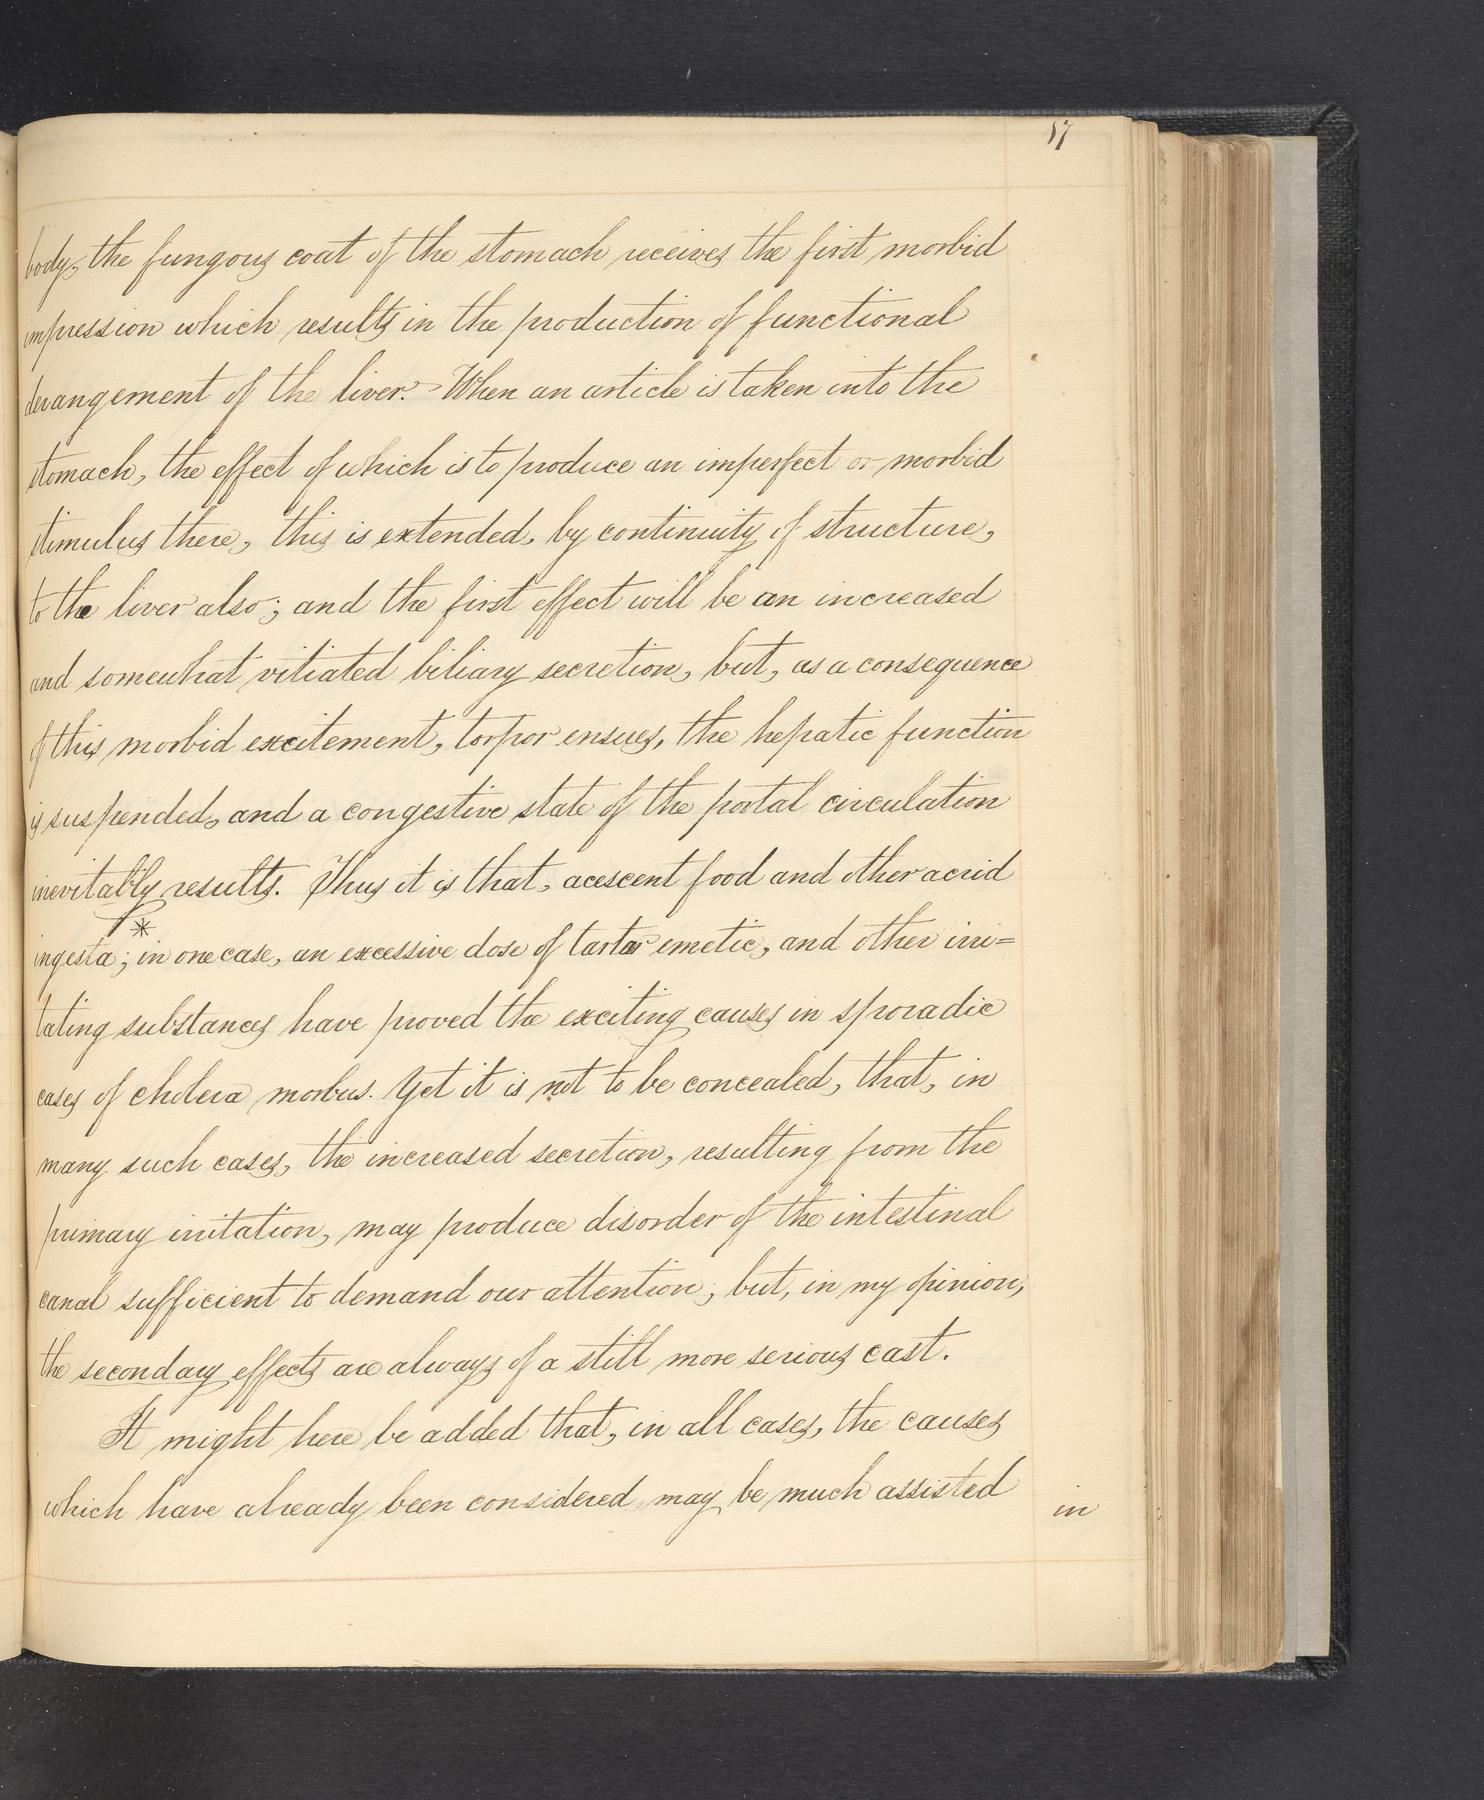 17
body, the fungous coat of the stomach receives the first morbid
impression which results in the production of functional
derangement of the liver. When an article is taken into the
stomach, the effect of which is to produce an imperfect or morbid
stimulus there, this is extended, by continuity of structure,
to the liver also; and the first effect will be an increased
and somewhat vitiated biliary secretion, but, as a consequence
of this morbid excitement, torpor ensues, the hepatic function
is suspended, and a congestive state of the portal circulation
inevitably results. Thus it is that, acescent food and other acrid
*
ingesta; in one case, an excessive dose of tartar emetic, and other irri=
tating substances have proved the exciting causes in sporadic
cases of cholera morbus. Yet it is not to be concealed, that, in
many such cases, the increased secretion, resulting from the
primary irritation, may produce disorder of the intestinal
canal sufficient to demand our attention; but, in my opinion,
the secondary effects are always of a still more serious cast.
It might here be added that, in all cases, the causes
which have already been considered may be much assisted
in